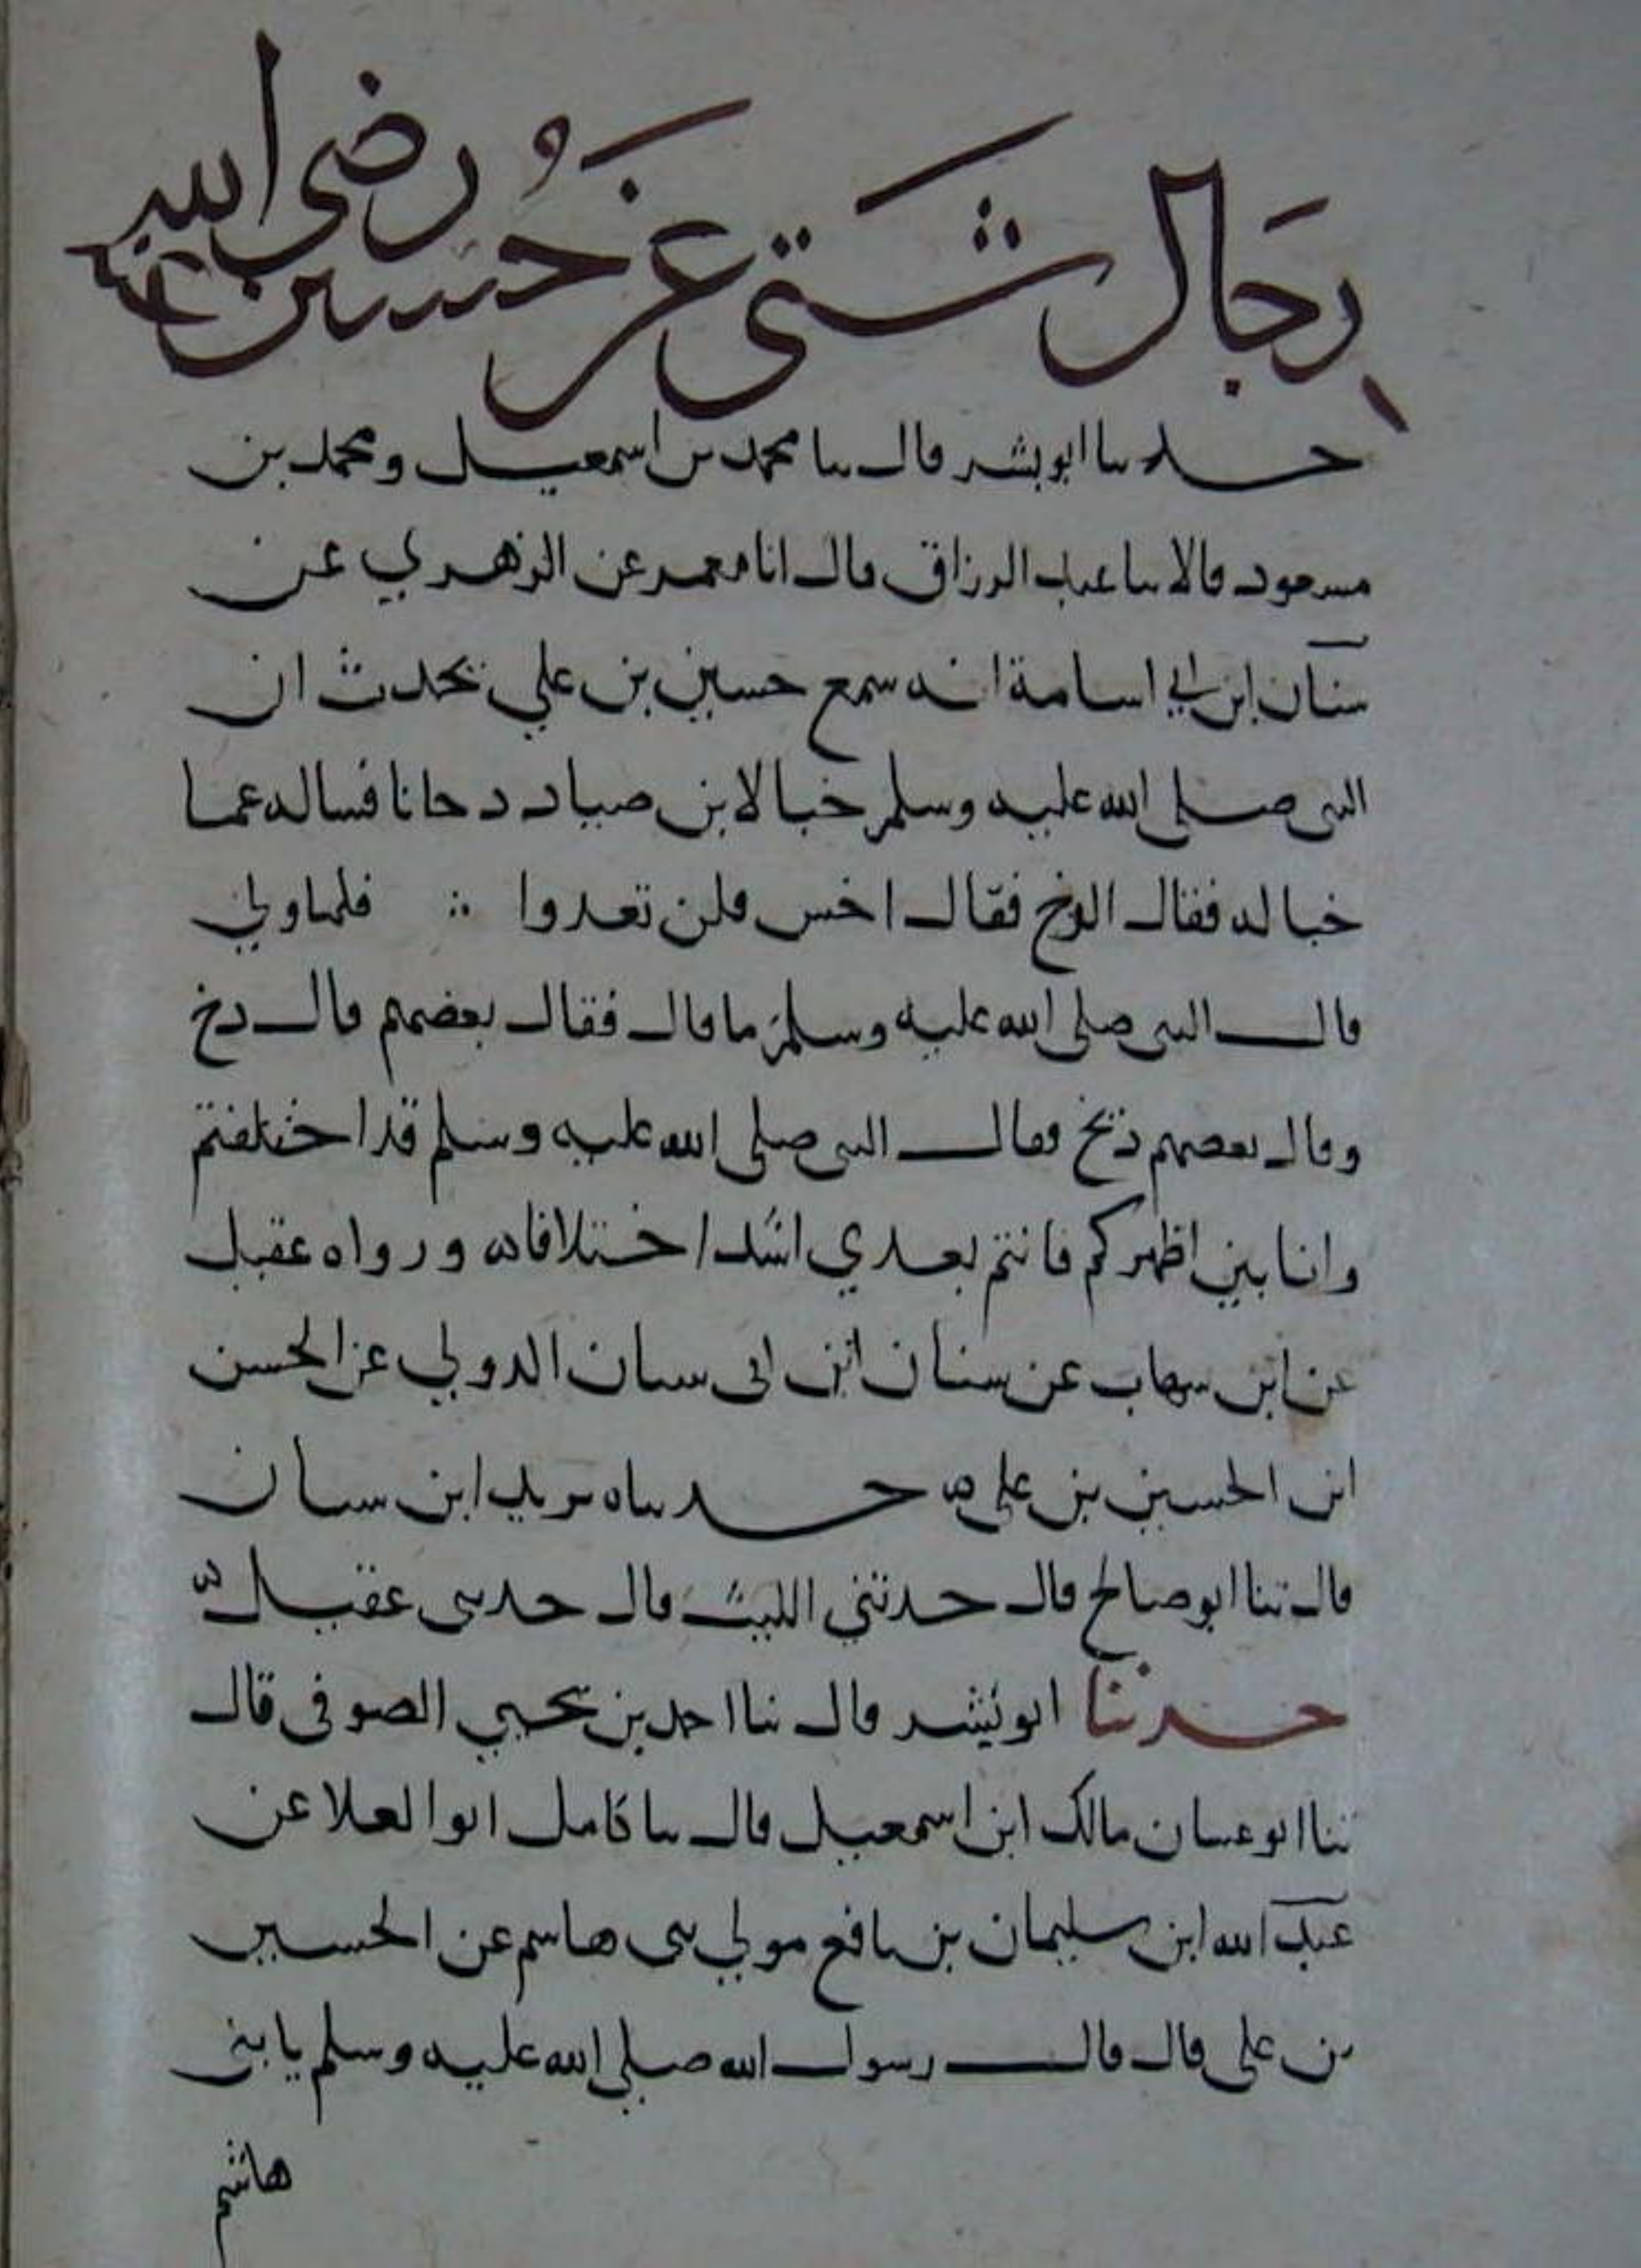 رجال شتى عن حسين رضي الله عنه
حدثنا ابو بشر قال ثنا محمد بن اسمعيل ومحمد بن
مسعود قالا ثنا عبد الرزاق قال انا معمر عن الزهري عن
سنان ابن ابي اسامة انه سمع حسين بن علي يحدث ان
النبي صلى الله عليه وسلم خبا لابن صياد دخانا فساله عما
خبا له فقال الدخ فقال اخس فلن تعدوا ∴ فلما ولي
قال النبي صلى الله عليه وسلم ما قال فقال بعضهم قال دخ
وقال بعضهم ذيخ فقال النبي صلى الله عليه وسلم قد اختلفتم
وانا بين اظهركم فانتم بعدي اشد اختلافا ه ورواه عقيل
عن ابن شهاب عن سنان ابن ابي سنان الدولي عن الحسن
ابن الحسين بن علي ه حدثناه يزيد ابن سنان
قال ثنا ابو صالح قال حدثني الليث قال حدثني عقيل ه
حدثنا ابو بشر قال ثنا احمد بن يحيي الصوفي قال
ثنا ابو غسان مالك ابن اسمعيل قال ثنا كامل ابوا لعلا عن
عبد الله ابن سليمان بن نافع مولي بني هاشم عن الحسين
بن علي قال قال رسول الله صلى الله عليه وسلم يا بني
هاشم